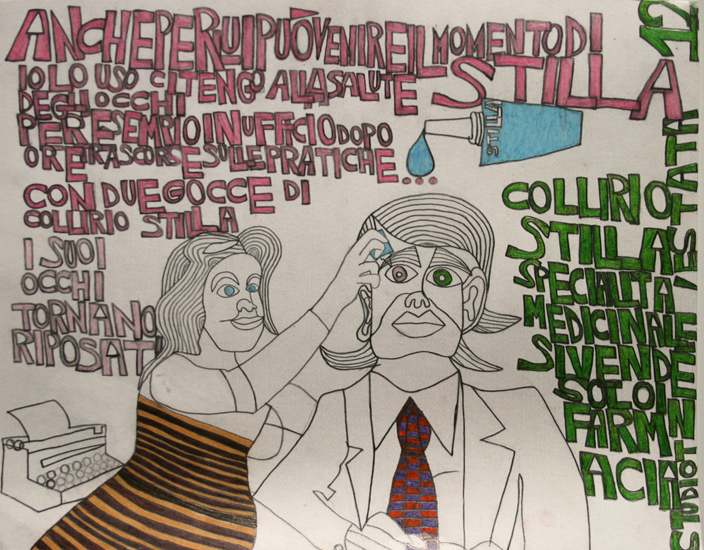 ANCHE PER LUI PUÒ VENIRE IL MOMENTO DI
STILLA
IO LO USO CI TENGO ALLA SALUTE
DEGLI OCCHI
PER ESEMPIO IN UFFICIO DOPO
ORE TRASCORSE SULLE PRATICHE...
CON DUE GOCCE DI
COLLIRIO STILLA
I SUOI
OCCHI
TORNANO
RIPOSATI
STILLA
COLLIRIO
STILLA
SPECIALITA'
MEDICINALE
SI VENDE
SOLO IN
FARM
ACIA
12